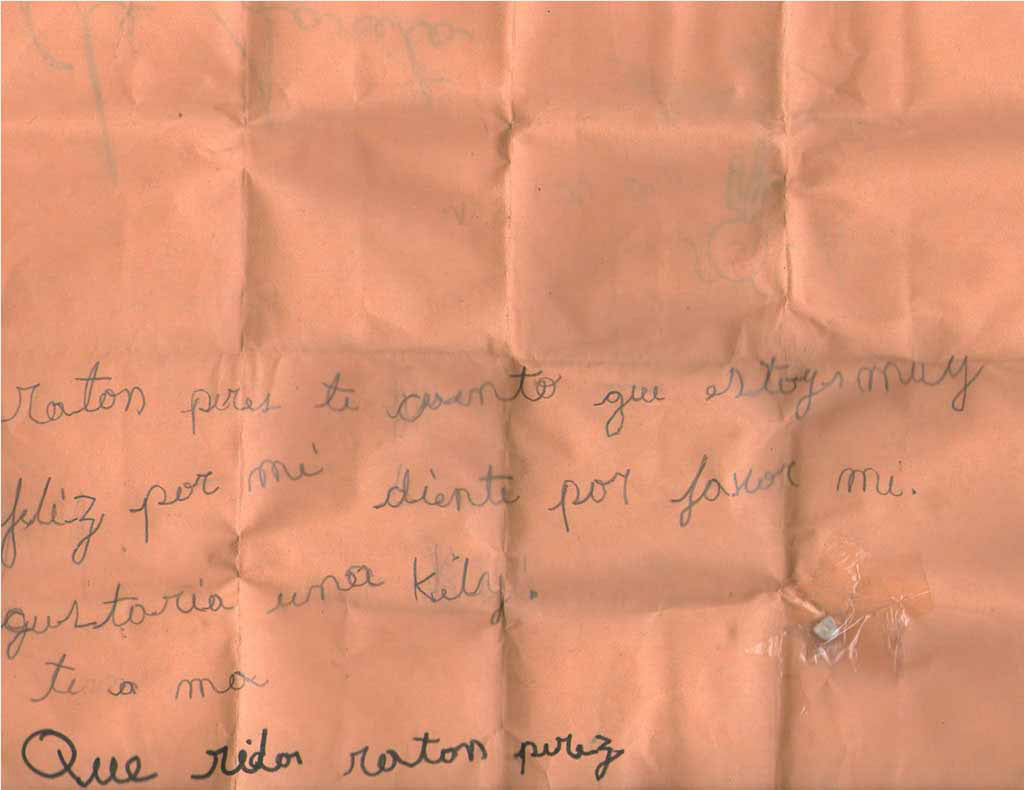 raton peres te cuento que estoy muy
feliz por mi diente por favor mi.
gustaria una kity.
te a ma
Que rido raton perez